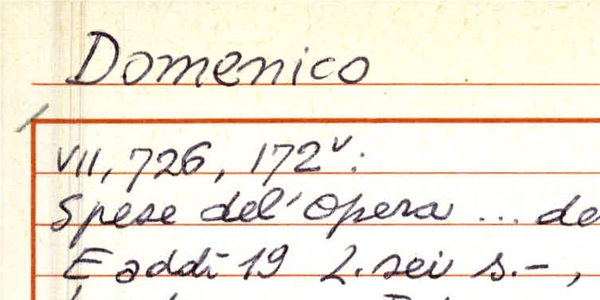 Domenico
VII, 726, 172v:
Spese del' Opera ... de
E addì 19 L. sei s.–,